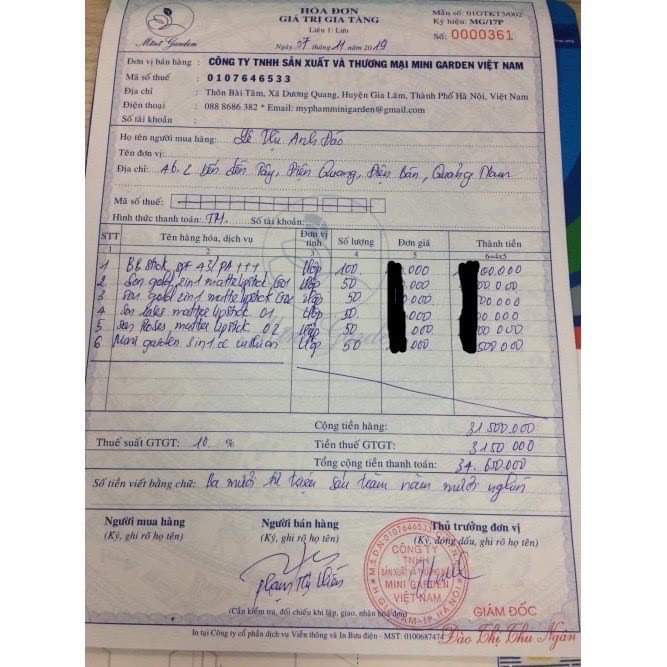 HÓA ĐƠN
GIÁ TRỊ GIA TĂNG
Liên 1: Lưu
Ngày 07 tháng 11 năm 2019
Mẫu số: 01GTKT3/002
Ký hiệu: MG/17P
Số: 0000361
Mini Garden
Đơn vị bán hàng : CÔNG TY TNHH SẢN XUẤT VÀ THƯƠNG MẠI MINI GARDEN VIỆT NAM
Mã số thuế : 0107646533
Địa chỉ : Thôn Bài Tâm, Xã Dương Quang, Huyện Gia Lâm, Thành Phố Hà Nội, Việt Nam
Điện thoại : 088 8686 382 * Email: myphamminigarden@gmail.com
Số tài khoản :
Họ tên người mua hàng: Lê Thị Anh Đào
Tên đơn vị:
Địa chỉ: Tây, Điện Quang, Điện Bàn, Quảng Nam
Mã số thuế:
Hình thức thanh toán: TM. Số tài khoản:
STT Tên hàng hóa, dịch vụ Đơn vị tính Số lượng Đơn giá Thành tiền
1 2 3 4 5 6=4x5
1 BB Stick SPF 43/PA+++ Hộp 100 .000 00.000
2 Son gold 2in1 matte lipstick Hộp 50 .000 00.000
3 Son gold 2in1 matte lipstick Hộp 50 .000 00.000
4 Son matte lipstick 01 Hộp 50 .000 00.000
5 Son Roses matte lipstick 02 Hộp 50 .000 00.000
6 Mini garden 3in1 cushion Hộp 50 .000 500.000
Cộng tiền hàng: 31.500.000
Thuế suất GTGT: 10 % Tiền thuế GTGT: 3150 000
Tổng cộng tiền thanh toán: 34.650.000
Số tiền viết bằng chữ: Ba mươi tư triệu sáu trăm năm mươi nghìn
Người mua hàng Người bán hàng Thủ trưởng đơn vị
(Ký, ghi rõ họ tên) (Ký, ghi rõ họ tên) (Ký, đóng dấu, ghi rõ họ tên)
M.S.D.N: 0107646533
CÔNG TY
TNHH
SẢN XUẤT VÀ THƯƠNG MẠI
MINI GARDEN
VIỆT NAM
H. GIA LÂM - TP. HÀ NỘI
Phạm Thị
GIÁM ĐỐC
Đào Thị Thu Ngân
(Cần kiểm tra, đối chiếu khi lập, giao, nhận hóa đơn)
In tại Công ty cổ phần dịch vụ Viễn thông và In Bưu điện - MST: 0100687474